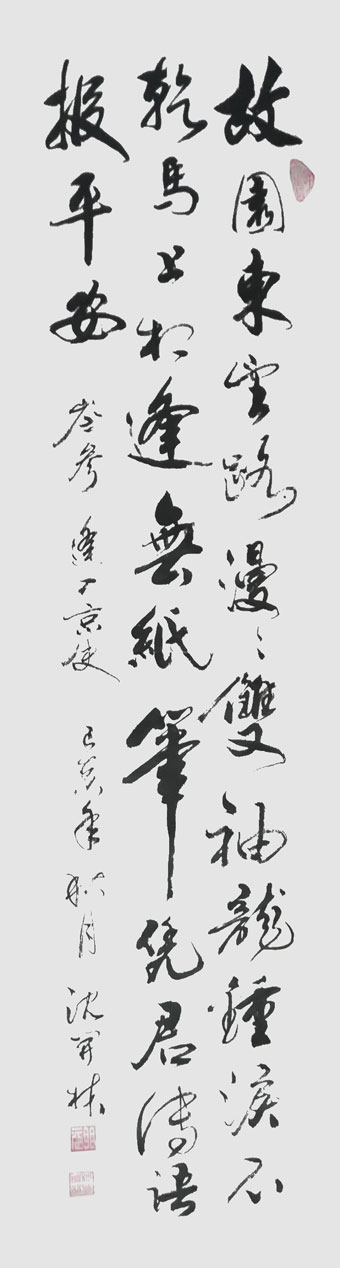 故園東望路漫〻雙袖龍鍾淚不
乾馬上相逢無紙筆凭君傳語
報平安
岑參 逢入京使 己亥年秋月 沈